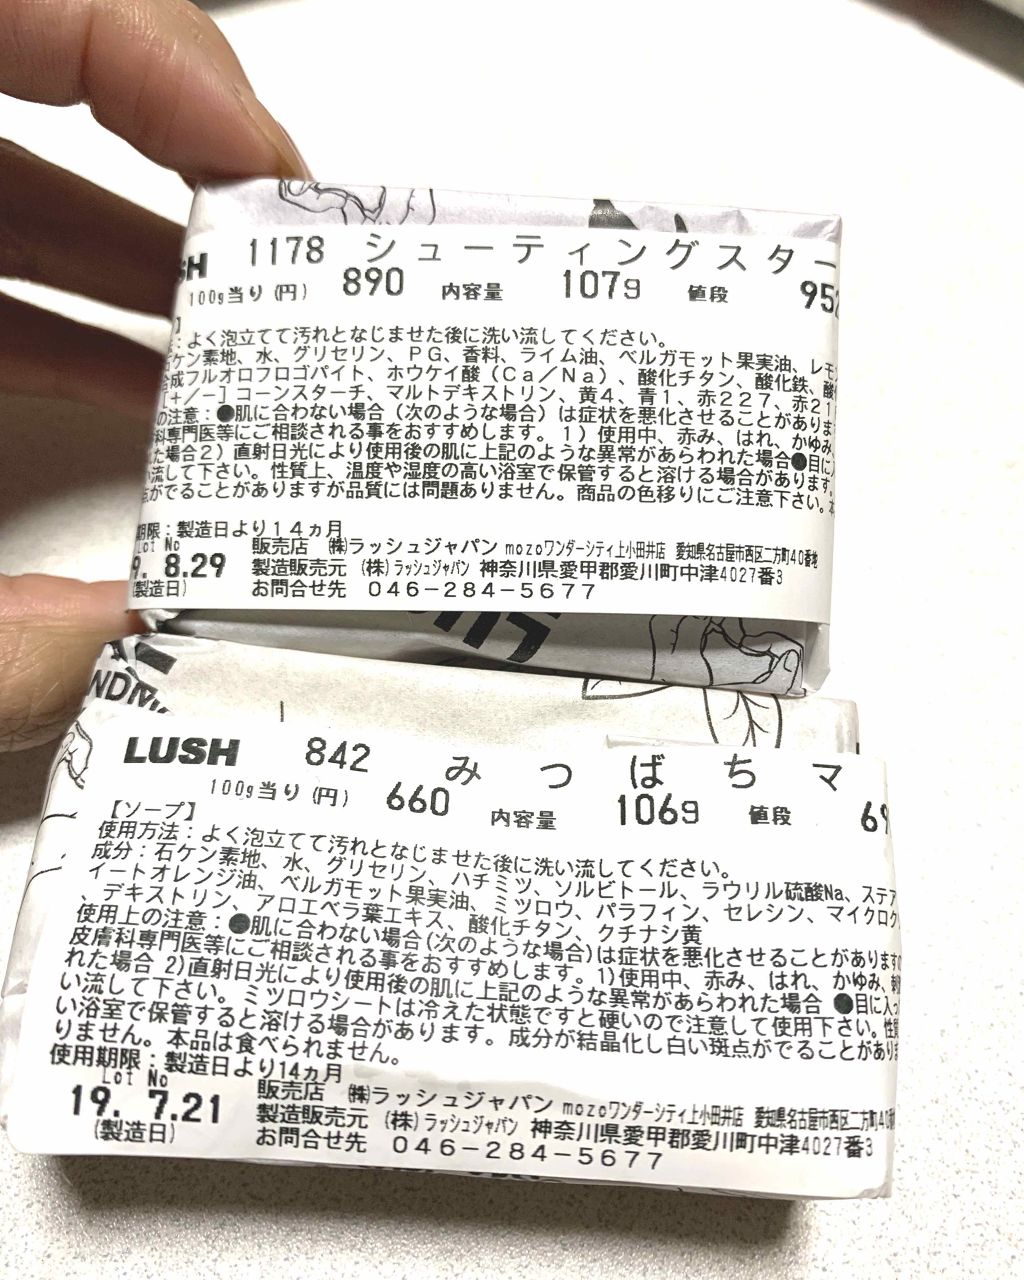 1178 シューティングスター
100g当り(円) 890 内容量 107g 値段
よく泡立てて汚れとなじませた後に洗い流してください。
ケン素地、水、グリセリン、PG、香料、ライム油、ベルガモット果実油、レモ
合成フルオロフロゴパイト、ホウケイ酸(Ca/Na)、酸化チタン、酸化鉄、酸
[+/-]コーンスターチ、マルトデキストリン、黄4、青1、赤227、赤21
の注意:●肌に合わない場合(次のような場合)は症状を悪化させることがありま
科専門医等にご相談される事をおすすめします。1)使用中、赤み、はれ、かゆみ、
た場合2)直射日光により使用後の肌に上記のような異常があらわれた場合●目に
流して下さい。性質上、温度や湿度の高い浴室で保管すると溶ける場合があります。
点がでることがありますが品質には問題ありません。商品の色移りにご注意下さい。本
期限:製造日より14ヵ月
Lot No 販売店 ㈱ラッシュジャパン mozoワンダーシティ上小田井店 愛知県名古屋市西区二方町40番地
9. 8.29 製造販売元 (株)ラッシュジャパン 神奈川県愛甲郡愛川町中津4027番3
(製造日) お問合せ先 046-284-5677
LUSH 842 みつばちマ
100g当り(円) 660 内容量 106g 値段
【ソープ】
使用方法:よく泡立てて汚れとなじませた後に洗い流してください。
成分:石ケン素地、水、グリセリン、ハチミツ、ソルビトール、ラウリル硫酸Na、ステア
イートオレンジ油、ベルガモット果実油、ミツロウ、パラフィン、セレシン、マイクロク
、デキストリン、アロエベラ葉エキス、酸化チタン、クチナシ黄
使用上の注意:●肌に合わない場合(次のような場合)は症状を悪化させることがあります
皮膚科専門医等にご相談される事をおすすめします。1)使用中、赤み、はれ、かゆみ、
れた場合 2)直射日光により使用後の肌に上記のような異常があらわれた場合 ●目に入っ
い流して下さい。ミツロウシートは冷えた状態ですと硬いので注意して使用下さい。性
い浴室で保管すると溶ける場合があります。成分が結晶化し白い斑点がでることがあり
りません。本品は食べられません。
使用期限:製造日より14ヵ月
Lot No 販売店 ㈱ラッシュジャパン mozoワンダーシティ上小田井店 愛知県名古屋市西区二方町40
19. 7.21 製造販売元 (株)ラッシュジャパン 神奈川県愛甲郡愛川町中津4027番3
(製造日) お問合せ先 046-284-5677